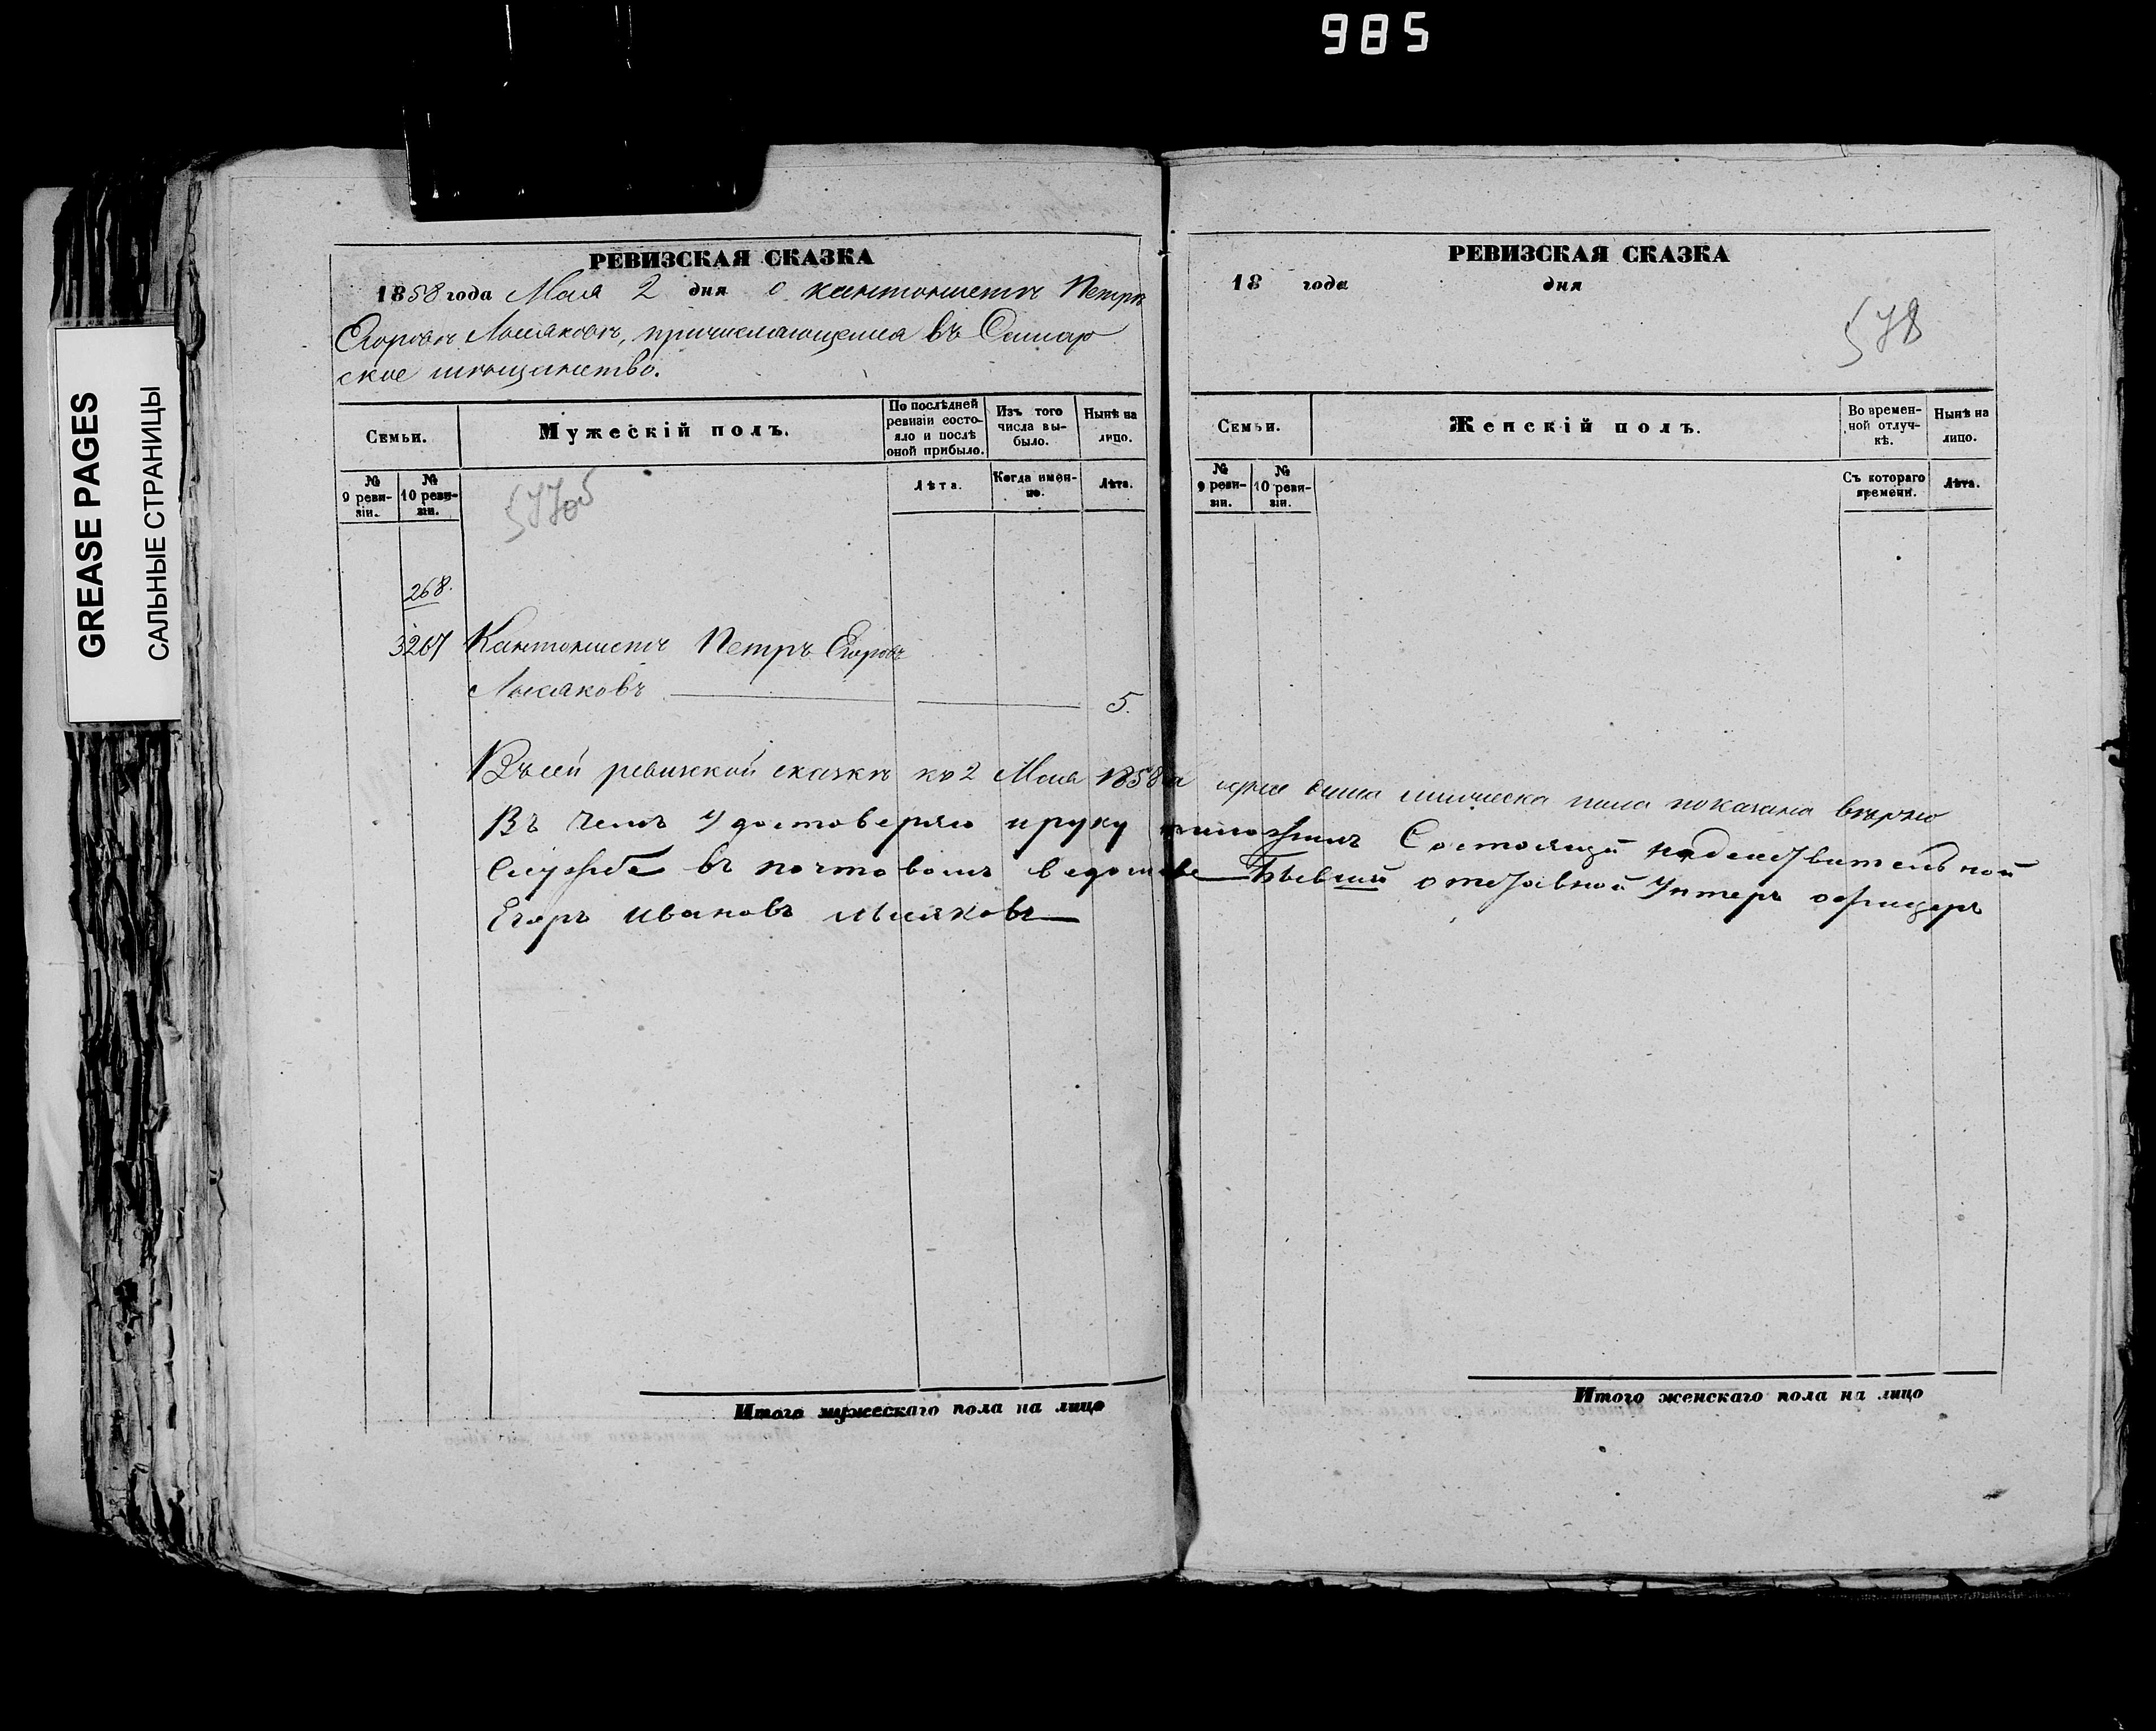 985
GREASE PAGES
САЛЬНЫЕ СТРАНИЦЫ
РЕВИЗСКАЯ СКАЗКА
1858 года Мая 2 дня о кантонистѣ Петрѣ
Егоровѣ, причисляющемся въ Самар
ское мѣщанство.
Семьи.
Мужескій полъ.
По послѣдней ревизіи состояло и послѣ оной прибыло.
Изъ того числа выбыло.
Нынѣ на лицо.
№ 9 ревизіи.
№ 10 ревизіи.
Лѣта.
Когда именно.
Лѣта.
268.
3267 Кантонистъ Петръ Егоровъ
5.
Въ сей ревизской сказкѣ ко 2 Мая 1858
Въ чемъ Удостоверяю и руку
Службе въ почтовомъ ведомстве
Егоръ Ивановъ
Итого мужескаго пола на лицо
РЕВИЗСКАЯ СКАЗКА
18 года дня
578
Семьи.
Женскій полъ.
Во временной отлучкѣ.
Нынѣ на лицо.
№ 9 ревизіи.
№ 10 ревизіи.
Съ котораго времени.
Лѣта.
душа мужеска пола показана вѣрно
Состоящій надействительной
Бывший отставной Унтеръ офицеръ
Итого женскаго пола на лицо